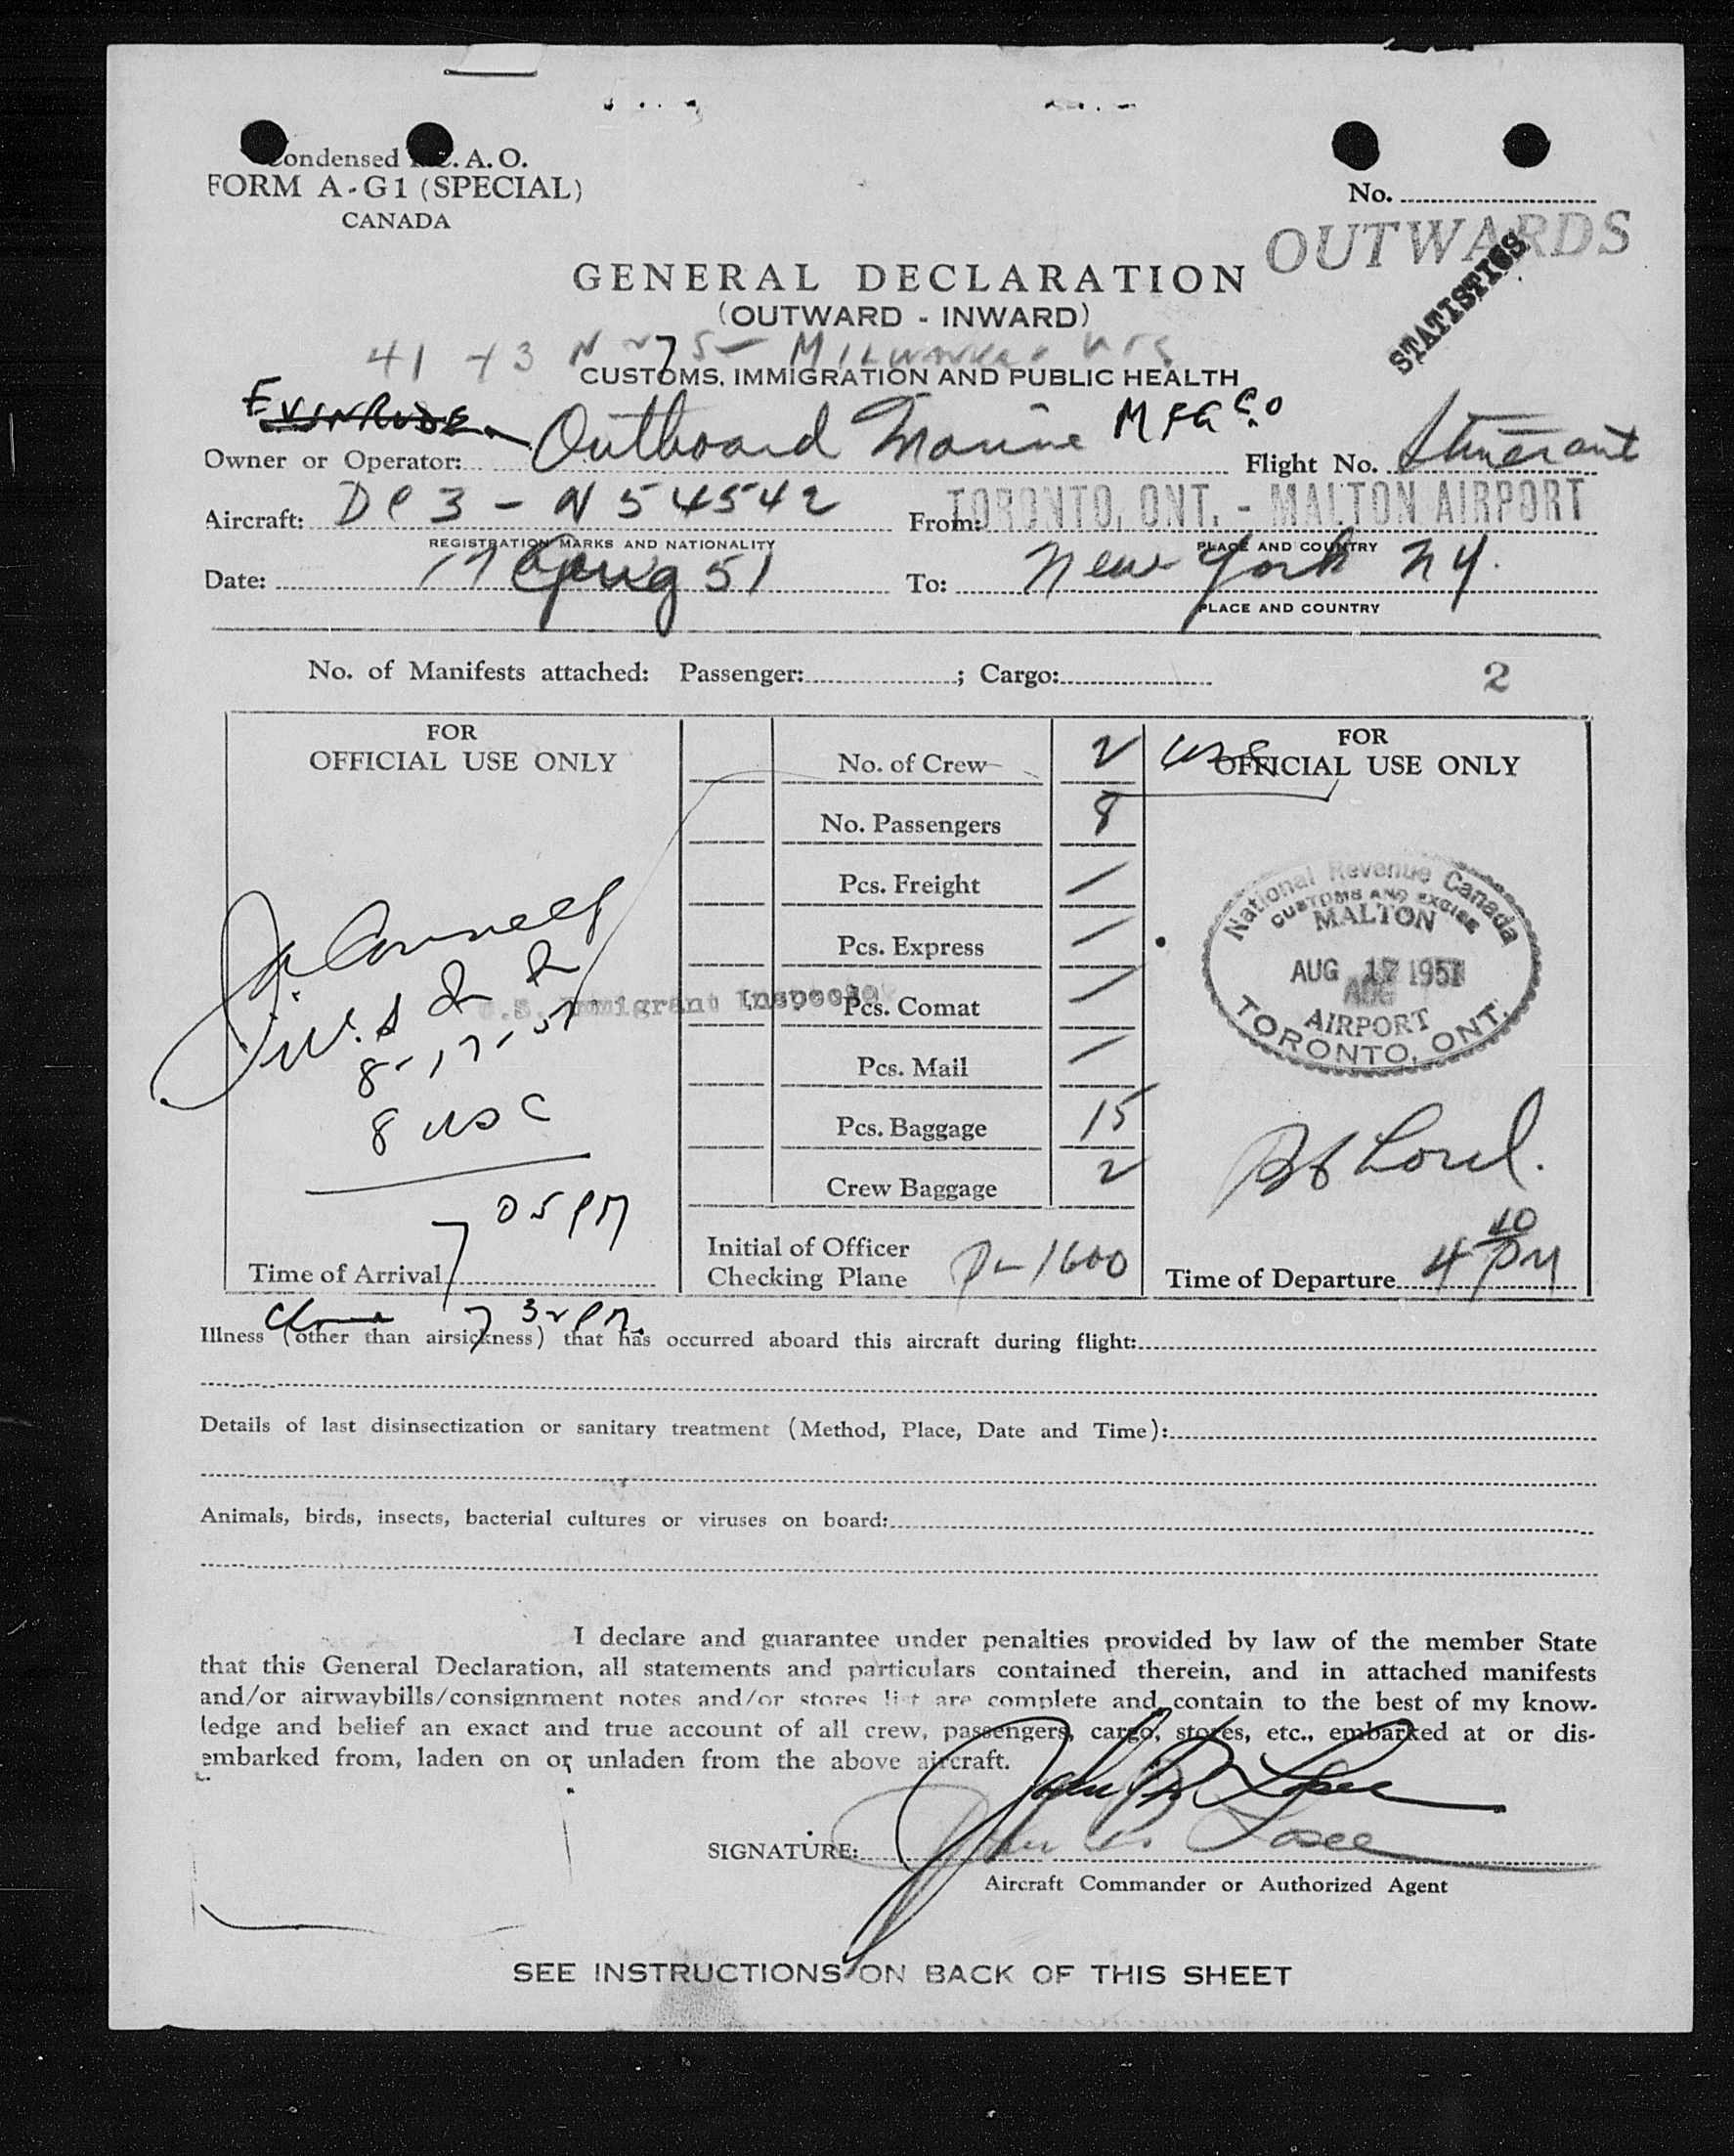 Condensed I.C.A.O.
FORM A-G1 (SPECIAL)
CANADA
No.
OUTWARDS
STATISTICS
GENERAL DECLARATION
(OUTWARD - INWARD)
CUSTOMS, IMMIGRATION AND PUBLIC HEALTH
EVINRUDE
Owner or Operator: Outboard Marine MFG CO Flight No. Itinerant
Aircraft: DC 3 - N 54542 From: TORONTO, ONT. - MALTON AIRPORT
REGISTRATION MARKS AND NATIONALITY PLACE AND COUNTRY
Date: 17 Aug 51 To: New York NY.
PLACE AND COUNTRY
No. of Manifests attached: Passenger: ; Cargo: 2
FOR
OFFICIAL USE ONLY
8-17-51
8 USC
7 05 PM
Time of Arrival
U.S. Immigrant Inspector
No. of Crew 2
No. Passengers 8
Pcs. Freight /
Pcs. Express /
Pcs. Comat /
Pcs. Mail /
Pcs. Baggage 15
Crew Baggage 2
Initial of Officer
Checking Plane 1600
FOR
OFFICIAL USE ONLY
National Revenue Canada
CUSTOMS AND EXCISE
MALTON
AUG 17 1951
AIRPORT
TORONTO, ONT.
Lord.
Time of Departure 4 10 PM
7 32 PM.
Illness (other than airsickness) that has occurred aboard this aircraft during flight:
Details of last disinsectization or sanitary treatment (Method, Place, Date and Time):
Animals, birds, insects, bacterial cultures or viruses on board:
I declare and guarantee under penalties provided by law of the member State
that this General Declaration, all statements and particulars contained therein, and in attached manifests
and/or airwaybills/consignment notes and/or stores list are complete and contain to the best of my know-
ledge and belief an exact and true account of all crew, passengers, cargo, stores, etc., embarked at or dis-
embarked from, laden on or unladen from the above aircraft.
SIGNATURE:
Aircraft Commander or Authorized Agent
SEE INSTRUCTIONS ON BACK OF THIS SHEET